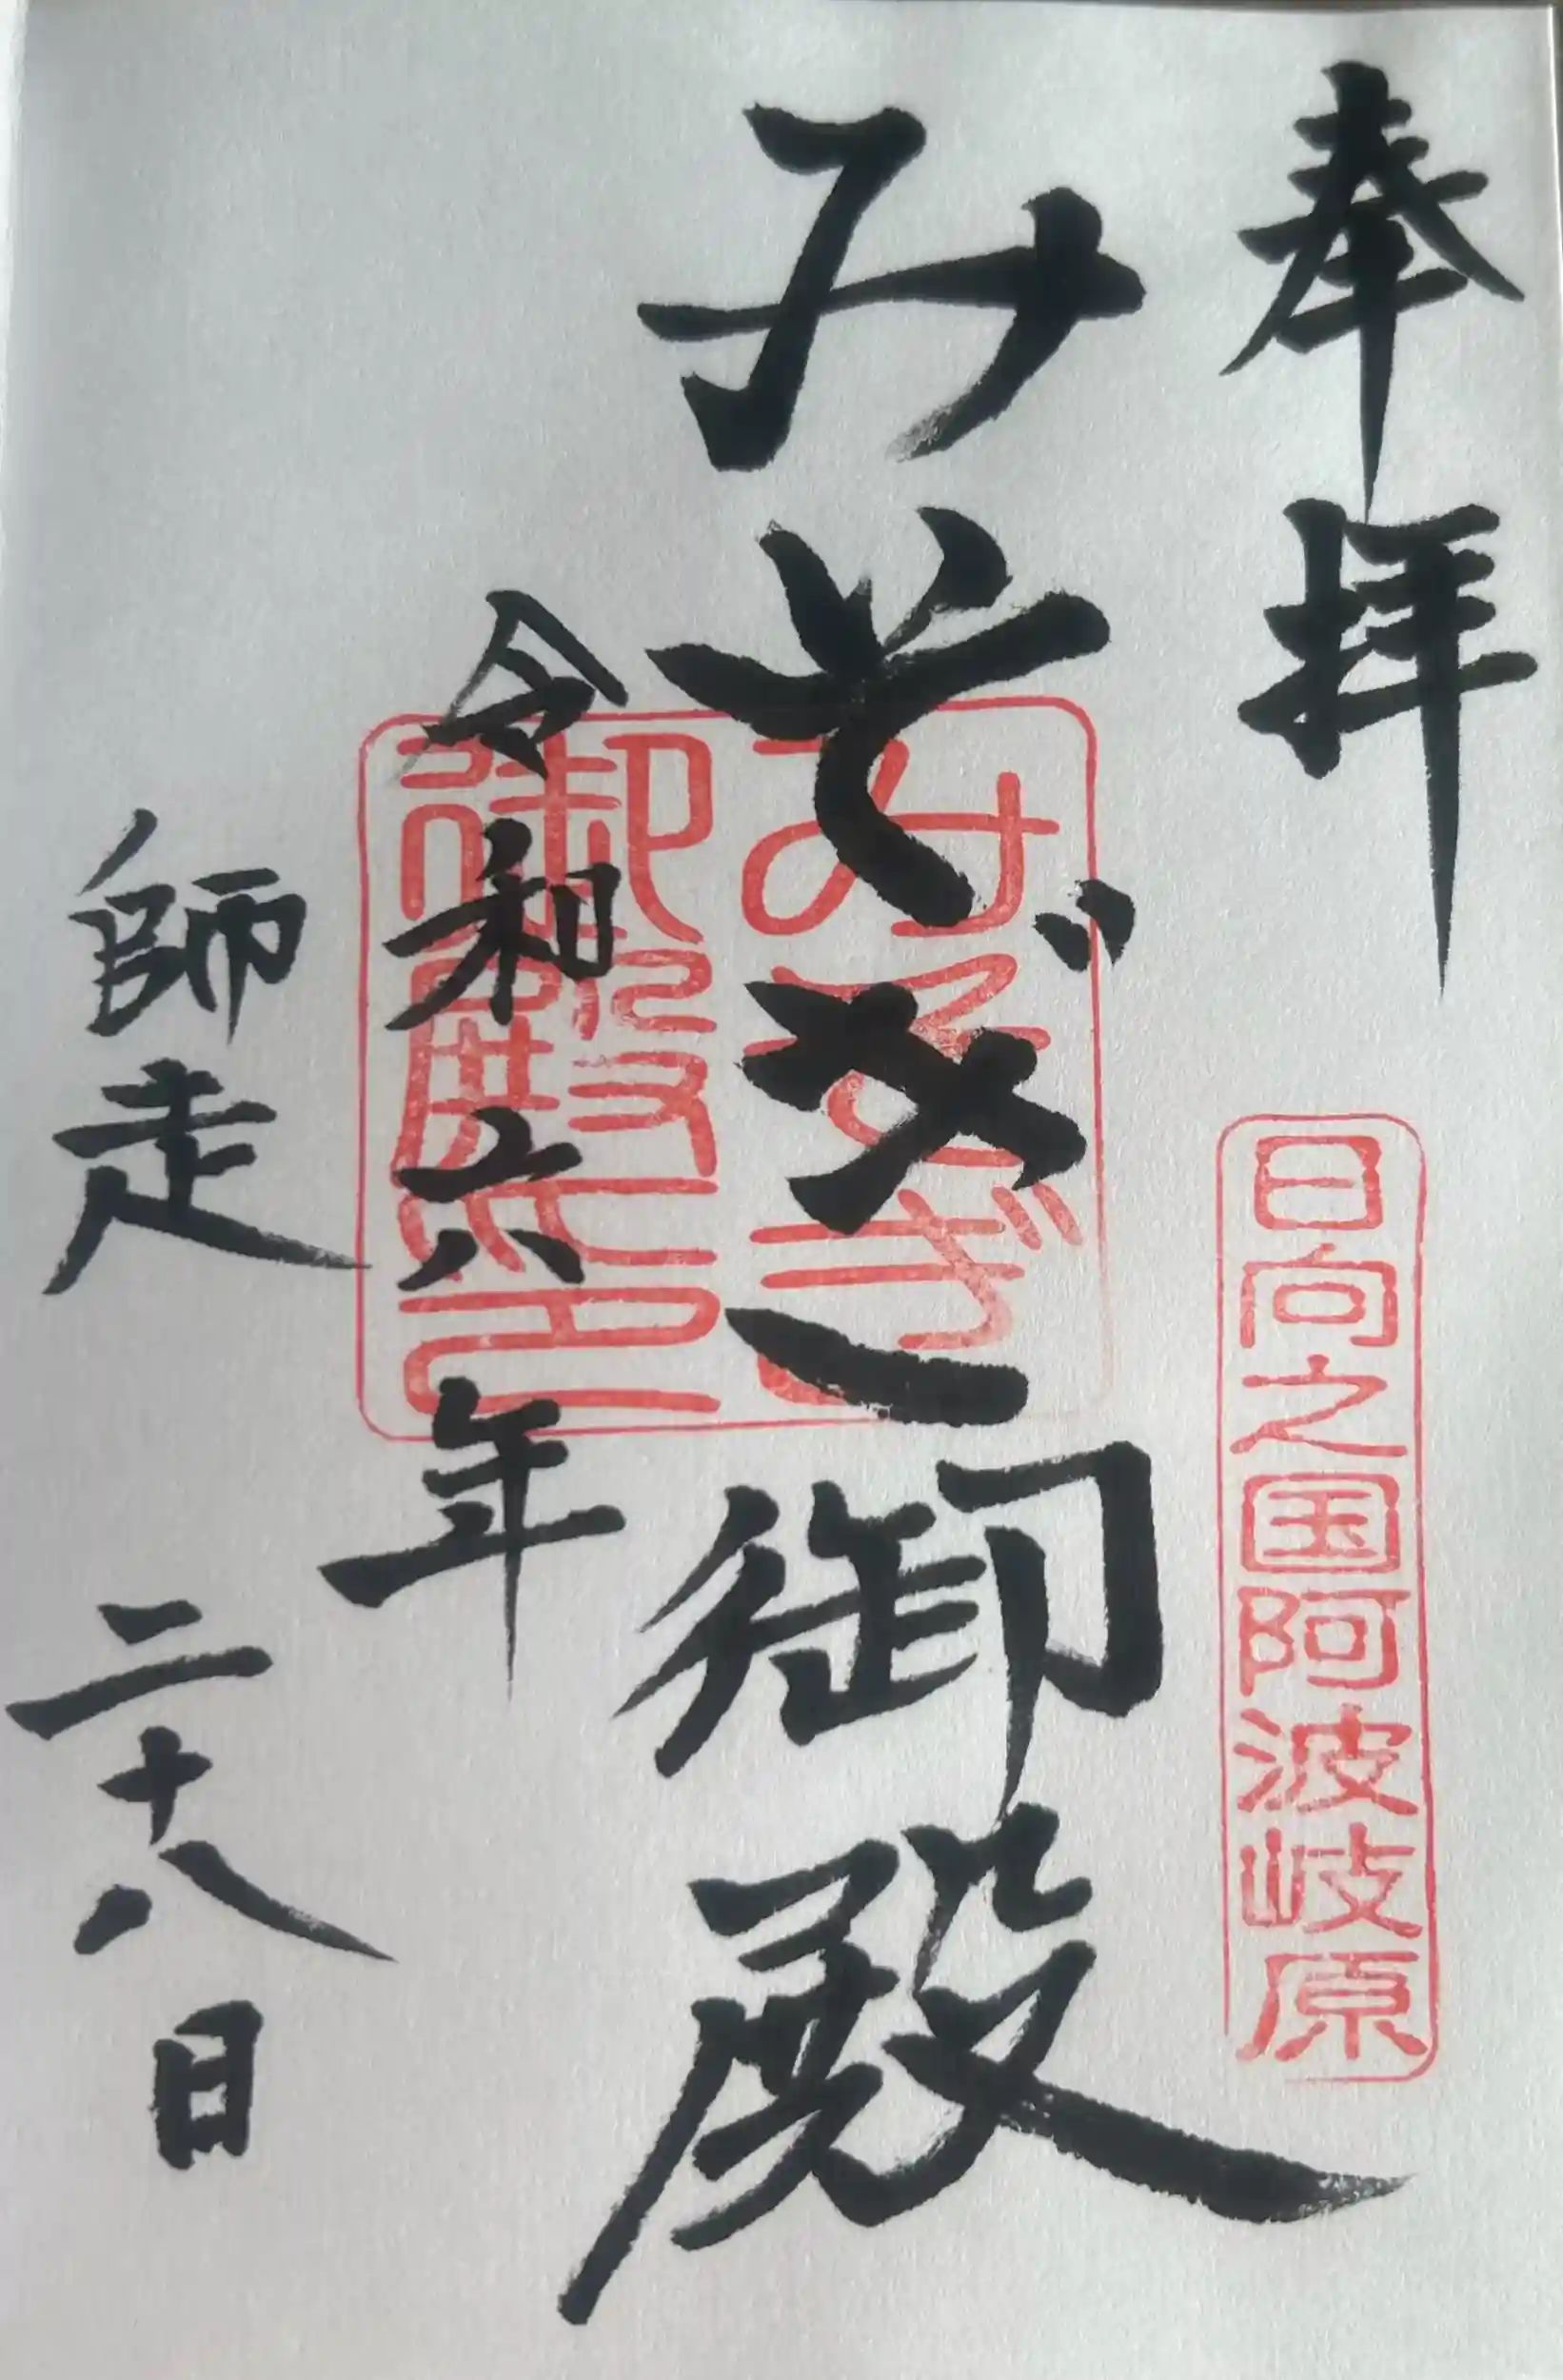 奉拝
日向之国阿波岐原
みそぎ御殿
みそぎ
御殿之印
令和六年
師走 二十八日